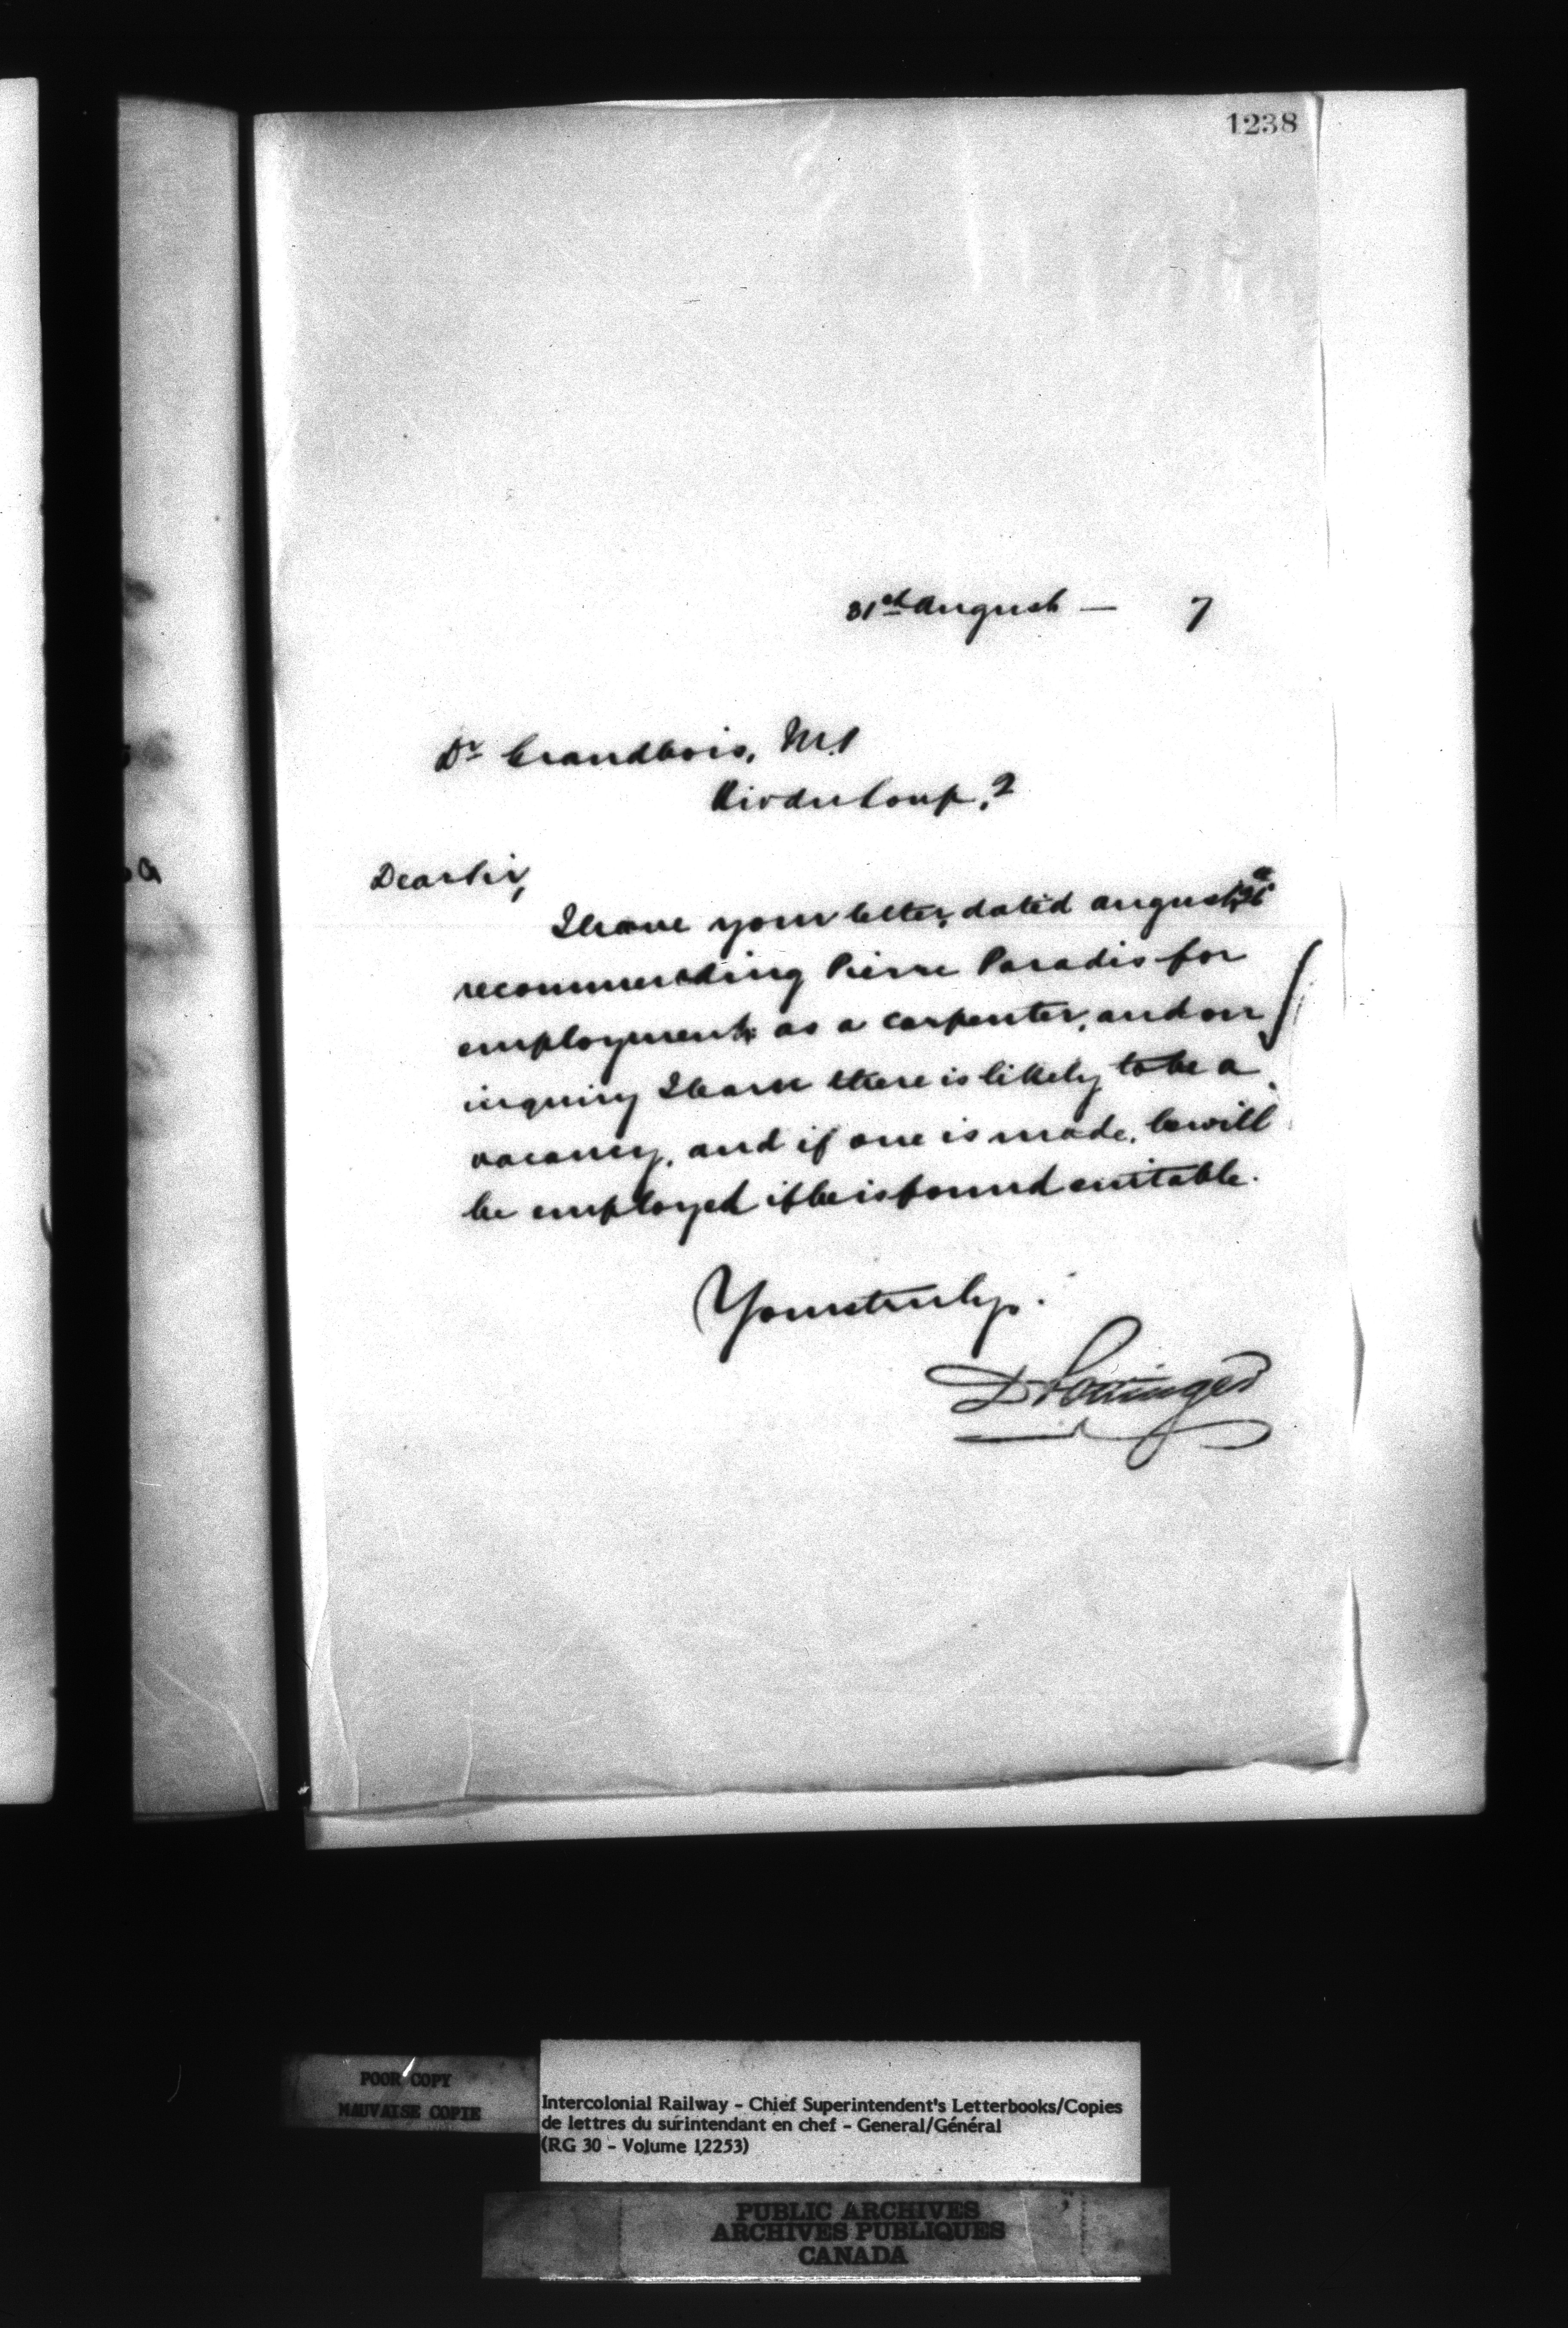 1238
31st August — 7
Dr Grandbois, M.P
Riv du Loup, Q
Dear Sir,
I have your letter, dated August
recommending Pierre Paradis for
employment as a carpenter, and on
inquiry I learn there is likely to be a
vacancy, and if one is made, he will
be employed if he is found suitable.
Yours truly,
D Pottinger
POOR COPY
MAUVAISE COPIE
Intercolonial Railway - Chief Superintendent's Letterbooks/Copies
de lettres du surintendant en chef - General/Général
(RG 30 - Volume 12253)
PUBLIC ARCHIVES
ARCHIVES PUBLIQUES
CANADA